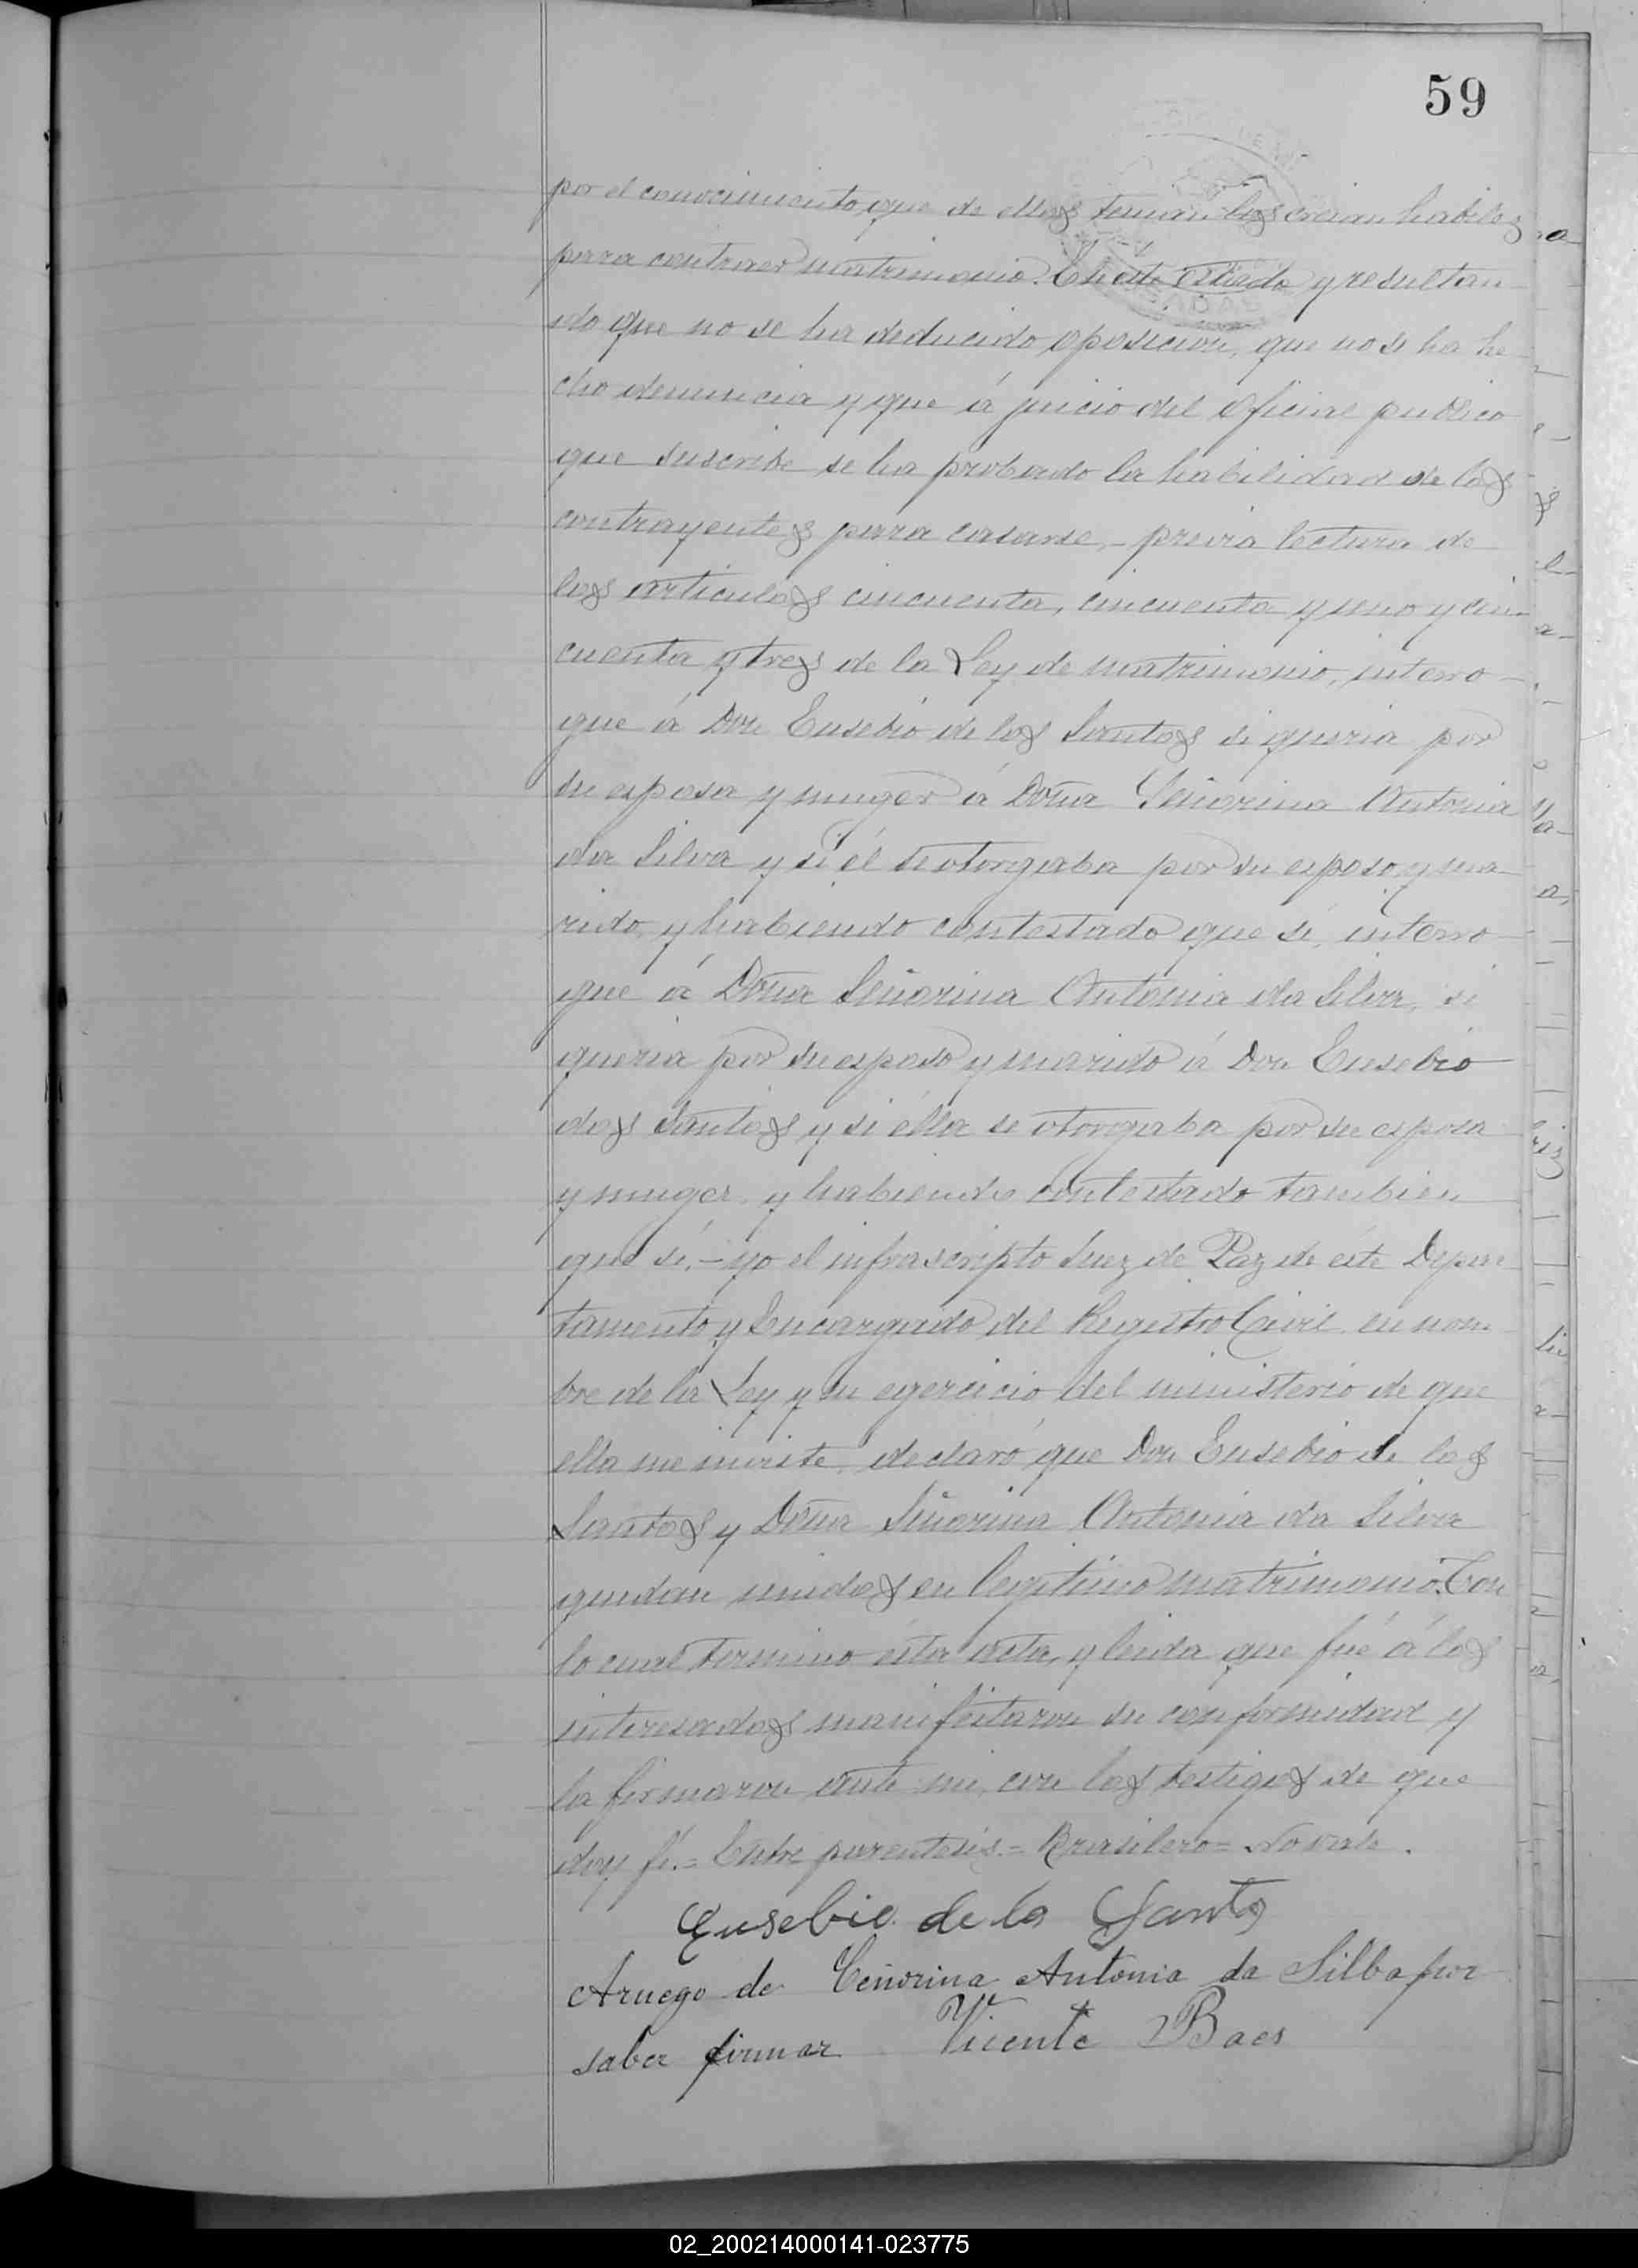 59
por el conocimiento que de ellos tenian los creian habiles
para contraer matrimonio. En este estado y resultan
do que no se ha deducido oposicion, que no se ha he
cho denuncia y que á juicio del Oficial publico
que suscribe se ha probado la habilidad de los
contrayentes para casarse,- previa lectura de
los articulos cincuenta, cincuenta y uno y cin-
cuenta y tres de la Ley de matrimonio, interro-
que á Don Eusebio de los Santos si queria por
su esposa y muger á Doña Señorina Antonia
da Silva y si él se otorgaba por su esposo y ma
rido, y habiendo contestado que si, interro
que á Doña Señorina Antonia da Silva, si
queria por su esposo y marido á Don Eusebio
dos Santos y si élla se otorgaba por su esposa
y muger y habiendo contestado tambien
que sí,- yo el infrascripto Juez de Paz de éste Depar
tamento y Encargado del Registro Civil en nom
bre de la Ley y en egercicio del ministerio de que
ella me inviste, declaró que Don Eusebio de los
Santos y Doña Señorina Antonia da Silva
quedan unidos en legitimo matrimonio. Con
lo cual termino ésta acta, y leida que fué á los
interesados manifestaron su conformidad y
la firmaron ante mi, con los testigos de que
doy fé.= Entre parentesis.= Brasilero= No vale.
Eusebio de los Santos
Aruego de Ceñorina Antonia da Silba por
saber firmar Vicente Baes
02_200214000141-023775